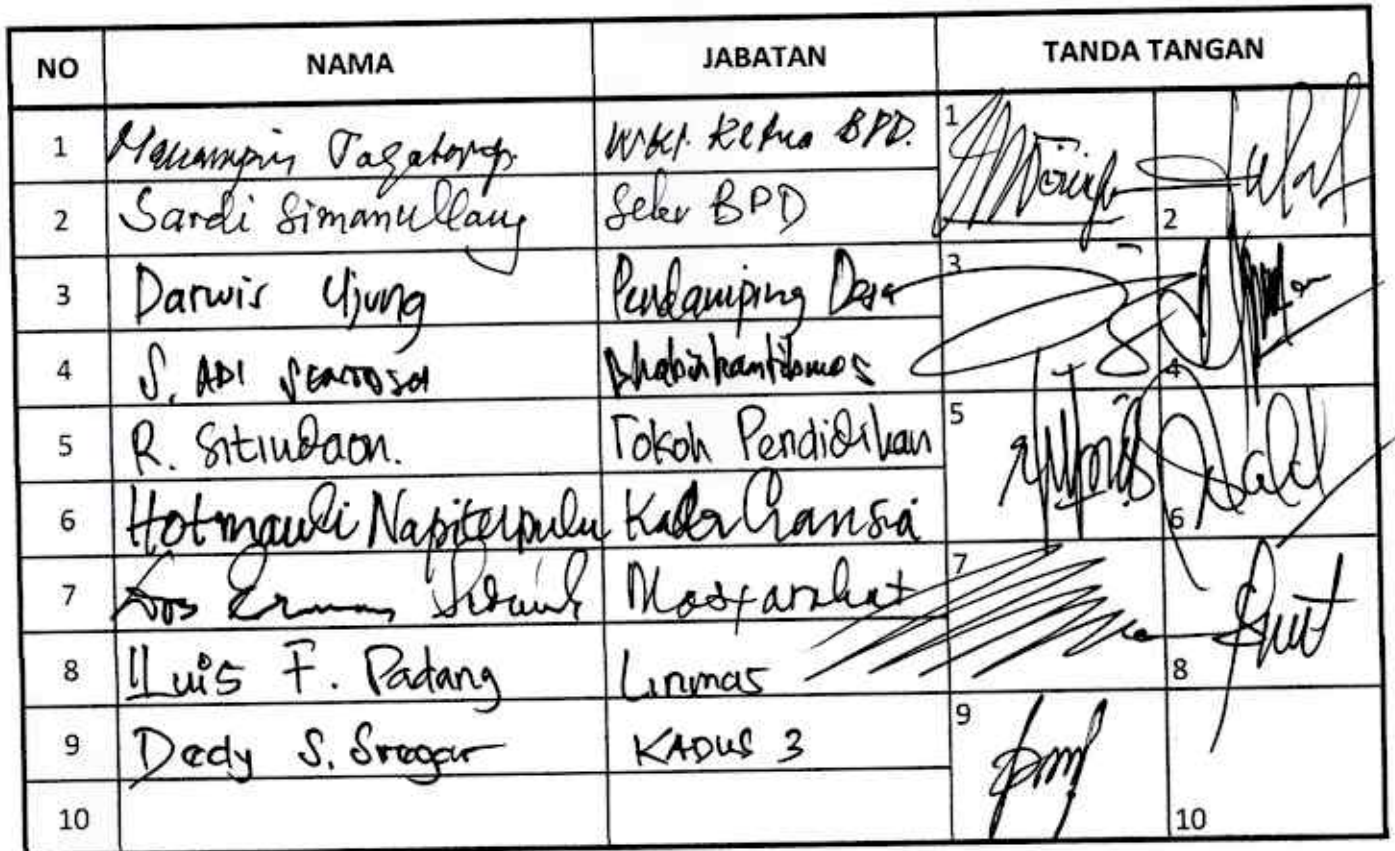 NO NAMA JABATAN TANDA TANGAN
1 Wkl. Ketua BPD. 1
2 Sardi Simanullang Seker BPD 2
3 Darwis Ujung Pendamping Desa 3
4 S. ADI SENTOSA Bhabinkamtibmas 4
5 R. Sitindaon. Tokoh Pendidikan 5
6 Hotmauli Napitupulu Kader Lansia 6
7 Masyarakat 7
8 Luis F. Padang Linmas 8
9 Dedy S. Sregar KADUS 3 9
10 10